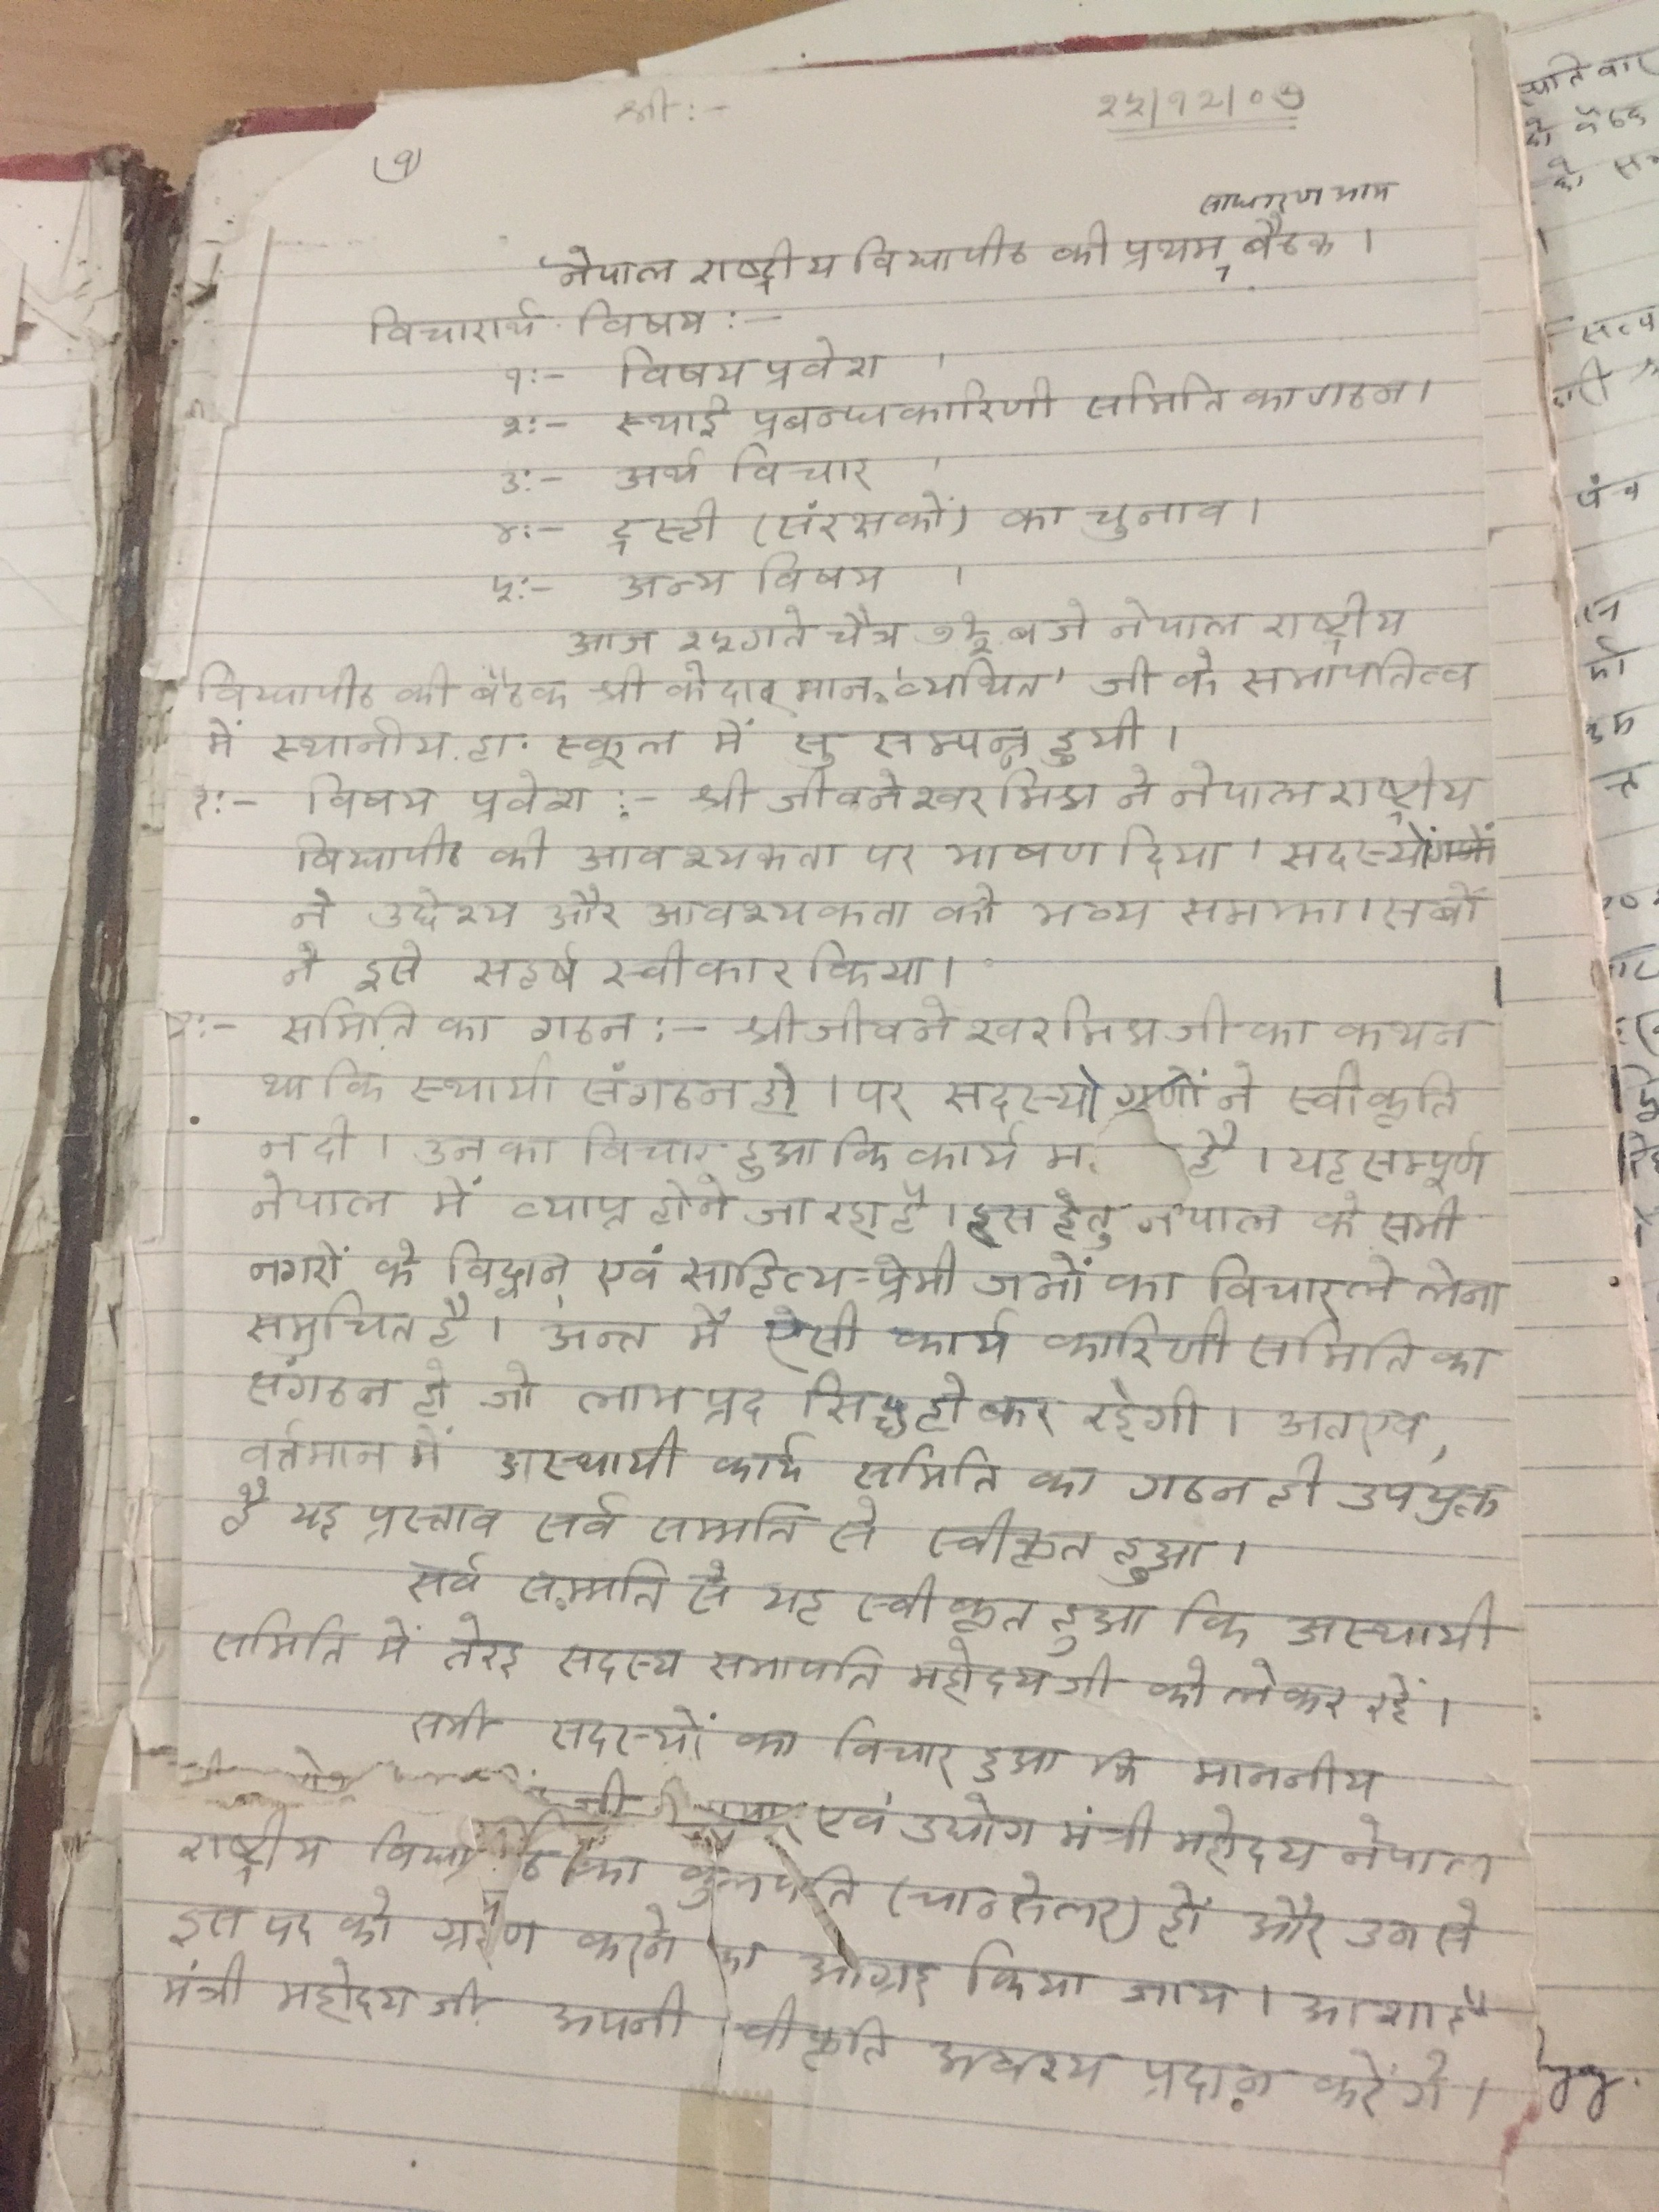 श्री:-
२५/१२/०७
(१)
साधारण आम
नेपाल राष्ट्रीय विद्यापीठ की प्रथम बैठक ।
विचारार्थ विषय :-
१:- विषय प्रवेश ।
२:- स्थाई प्रबन्धकारिणी समिति का गठन ।
३:- अर्थ विचार ।
४:- ट्रस्टी (संरक्षकों) का चुनाव ।
५:- अन्य विषय ।
आज २५ गते चैत्र बजे नेपाल राष्ट्रीय
विद्यापीठ की बैठक श्री केदार मान 'व्यथित' जी के सभापतित्व
में स्थानीय हा. स्कूल में सु सम्पन्न हुयी ।
१:- विषय प्रवेश :- श्री जीवनेश्वर मिश्र ने नेपाल राष्ट्रीय
विद्यापीठ की आवश्यकता पर भाषण दिया । सदस्यों
ने उद्देश्य और आवश्यकता को भव्य समझा । सबों
ने इसे सहर्ष स्वीकार किया ।
२:- समिति का गठन :- श्री जीवनेश्वर मिश्र जी का कथन
था कि स्थायी संगठन हो । पर सदस्यो गणों ने स्वीकृति
न दी । उनका विचार हुआ कि कार्य म है । यह सम्पूर्ण
नेपाल में व्याप्त होने जा रहा है । इस हेतु नेपाल के सभी
नगरों के विद्वान एवं साहित्य-प्रेमी जनों का विचार ले लेना
समुचित है । अन्त में ऐसी कार्य कारिणी समिति का
संगठन हो जो लाभ प्रद सिद्ध हो कर रहेगी । अतएव,
वर्तमान में अस्थायी कार्य समिति का गठन ही उपयुक्त
है यह प्रस्ताव सर्व सम्मति से स्वीकृत हुआ ।
सर्व सम्मति से यह स्वीकृत हुआ कि अस्थायी
समिति में तेरह सदस्य सभापति महोदय जी को लेकर रहें ।
सभी सदस्यों का विचार हुआ कि माननीय
जी एवं उद्योग मंत्री महोदय नेपाल
राष्ट्रीय का कुलपति (चान्सेलर) हों और उन से
इस पद को ग्रहण करने का आग्रह किया जाय । आशा है
मंत्री महोदय जी अपनी स्वीकृति अवश्य प्रदान करेंगे ।